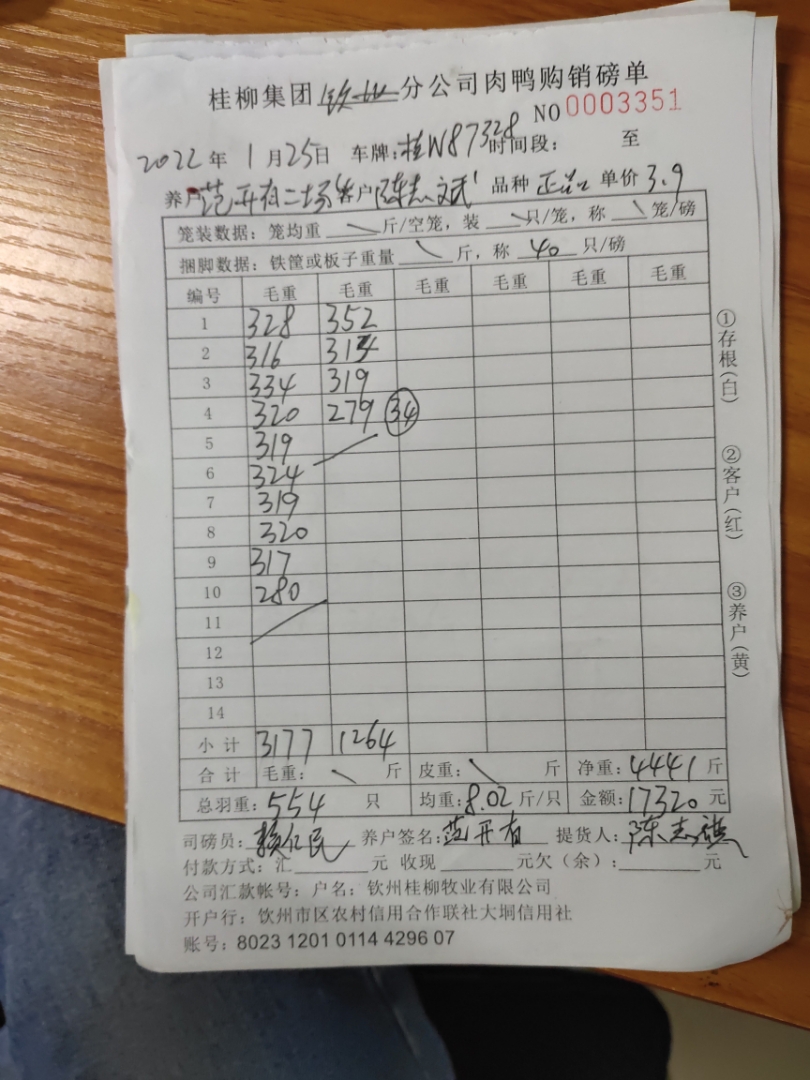 桂柳集团钦州分公司肉鸭购销磅单
NO 0003351
2022年1月25日 车牌:桂N87328 时间段: 至
养户范开有二场 客户陈志斌 品种 正品 单价3.9
笼装数据:笼均重 \ 斤/空笼,装 \ 只/笼,称 \ 笼/磅
捆脚数据:铁筐或板子重量 \ 斤,称 40 只/磅
编号 毛重 毛重 毛重 毛重 毛重 毛重
1 328 352
2 316 314
3 334 319
4 320 279 34
5 319
6 324
7 319
8 320
9 317
10 280
11
12
13
14
小计 3177 1264
合计 毛重: \ 斤 皮重: \ 斤 净重:4441斤
总羽重:554 只 均重:8.02斤/只 金额:17320元
司磅员: 养户签名:范开有 提货人:陈志
付款方式:汇 元 收现 元欠(余): 元
公司汇款帐号:户名:钦州桂柳牧业有限公司
开户行:钦州市区农村信用合作联社大垌信用社
账号:8023 1201 0114 4296 07
①存根(白)
②客户(红)
③养户(黄)